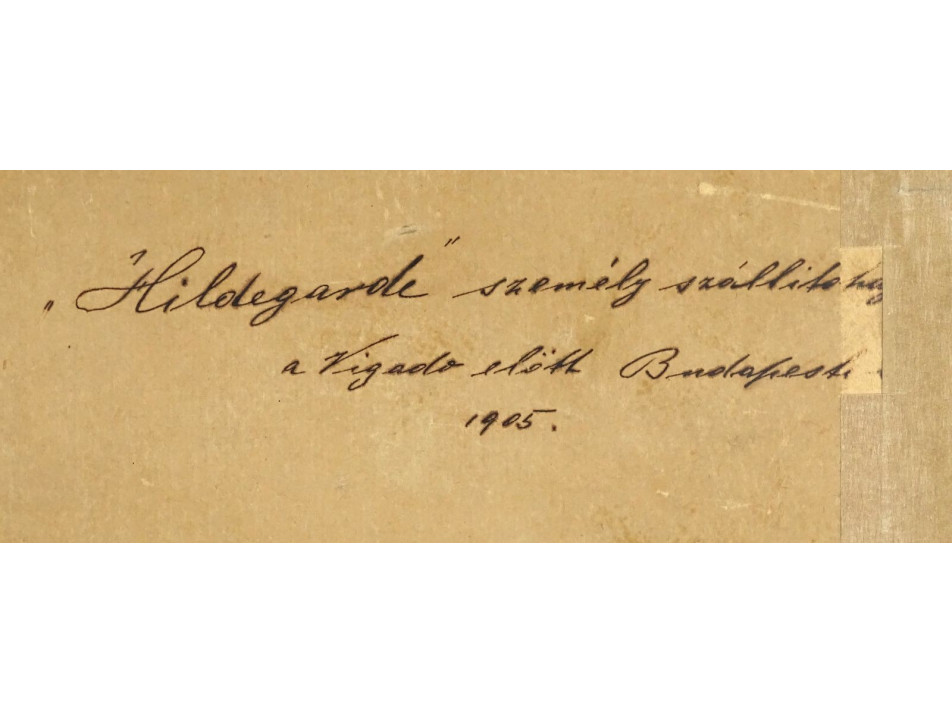 „Hildegarde” személy szállitohaj
a Vigado előtt Budapest
1905.